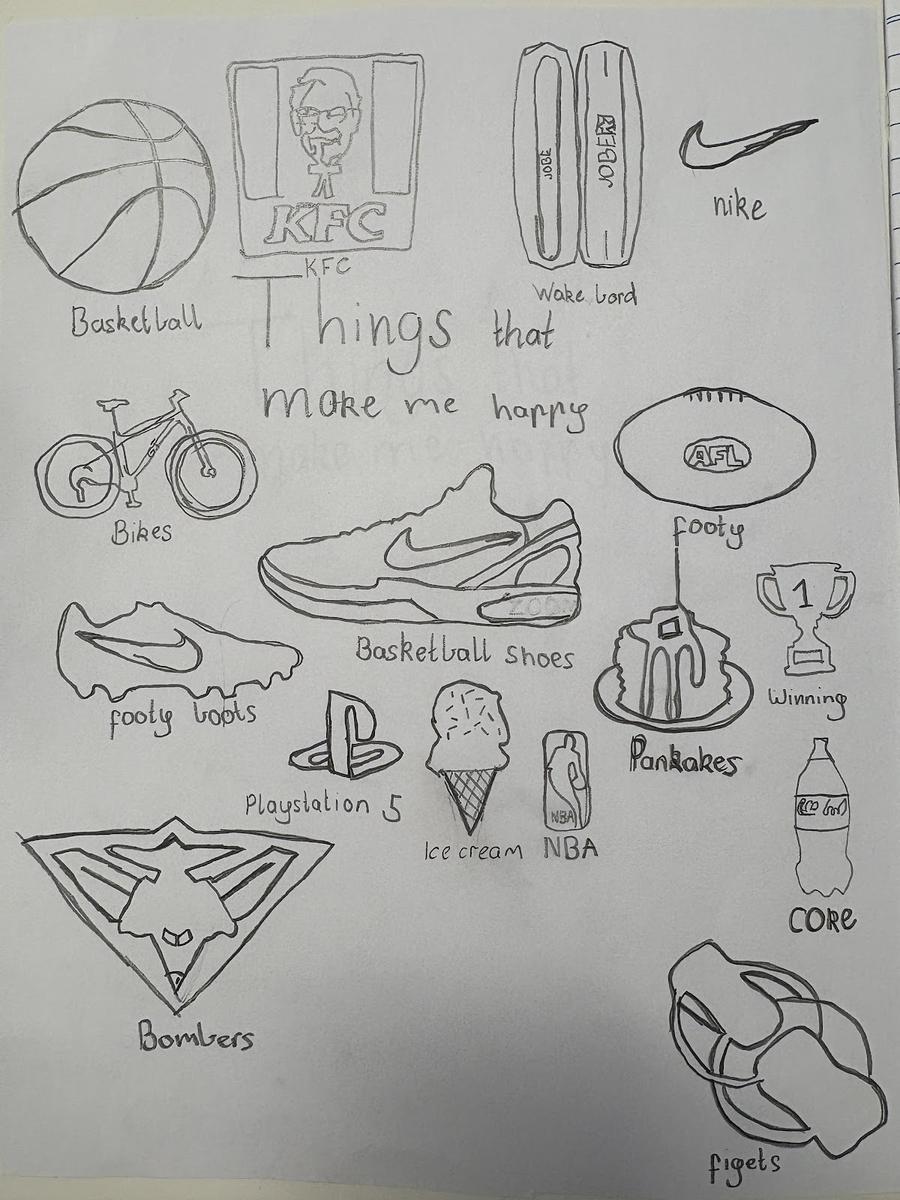 KFC
KFC
JOBE
JOBE
nike
Wake bord
Basketball
Things that
make me happy
AFL
footy
Bikes
1
ZOOM
Basketball shoes
Winning
footy boots
Pankakes
Playstation 5
NBA
Ice cream
NBA
CORe
Bombers
figets